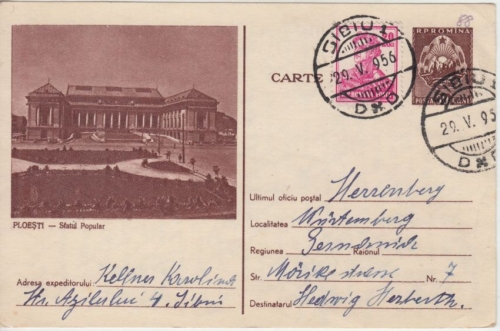 CARTE
R.P. ROMINA
SIBIU 1
29. V. 956
SIBIU 1
29. V. 95
PLOEȘTI — Sfatul Popular
Ultimul oficiu poștal Herrenberg
Localitatea Württemberg
Regiunea Raionul
Str. Mörike strasse Nr. 7
Destinatarul Hedwig Herberth
Adresa expeditorului Kellner Karolina
Str. Azilului 4. Sibiu